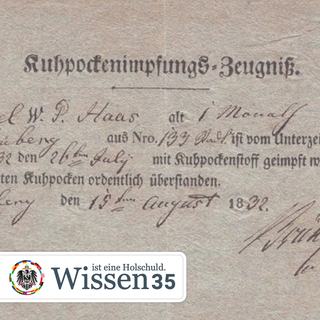 Kuhpockenimpfungs-Zeugniß.
W. P. Haas alt 1 Monath
berg aus Nro. 133 ist vom Unterzei
32 den 26ten July mit Kuhpockenstoff geimpft w
ten Kuhpocken ordentlich überstanden.
berg den 15ten August 1832.
ist eine Holschuld.
Wissen35